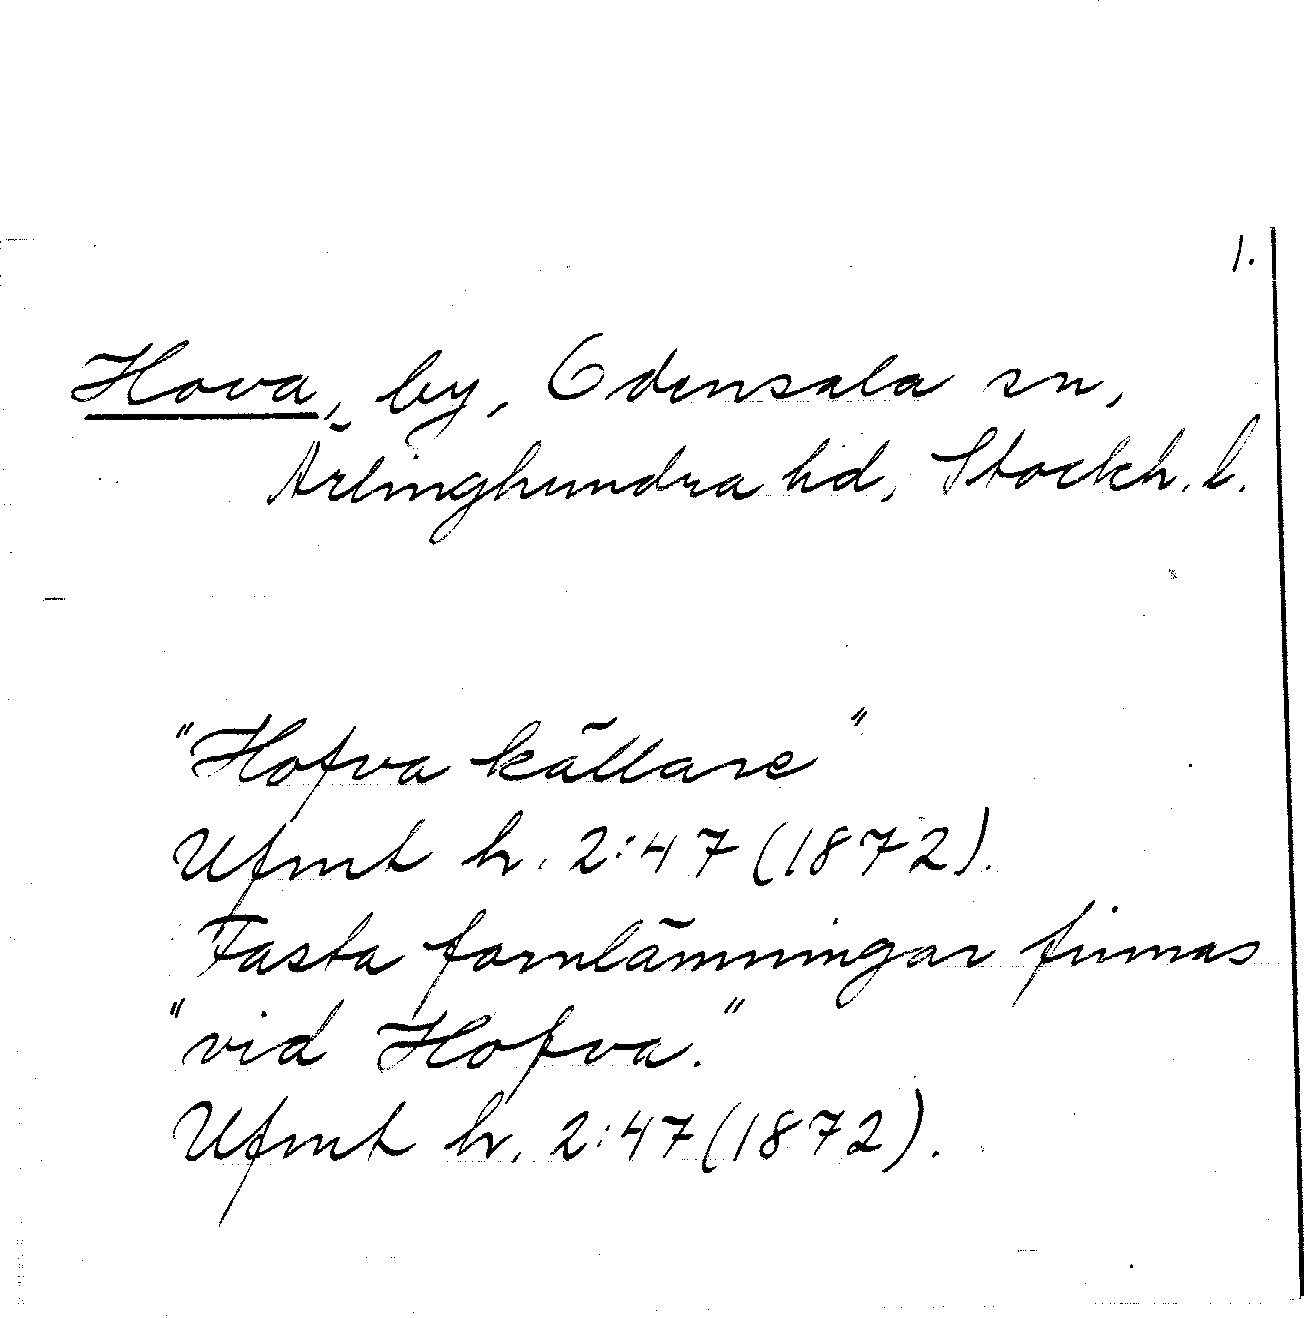 1.
Hova, by, Odensala sn,
Ärlinghundra hd, Stockh. l.
"Hofva källare"
Ufmt h. 2:47 (1872).
Fasta fornlämningar finnas
"vid Hofva."
Ufmt h. 2:47 (1872).